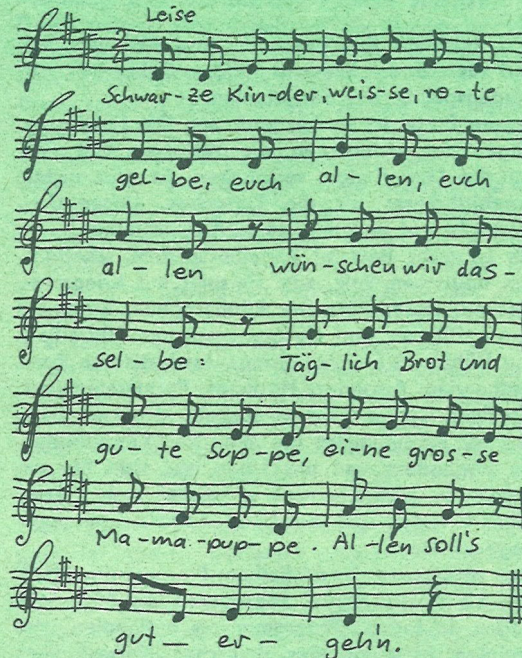 Leise
2
4
Schwar-ze Kin-der, weis-se, ro-te
gel-be, euch al-len, euch
al-len wün-schen wir das-
sel-be: Täg-lich Brot und
gu-te Sup-pe, ei-ne gros-se
Ma-ma-pup-pe. Al-len soll's
gut_ er- geh'n.